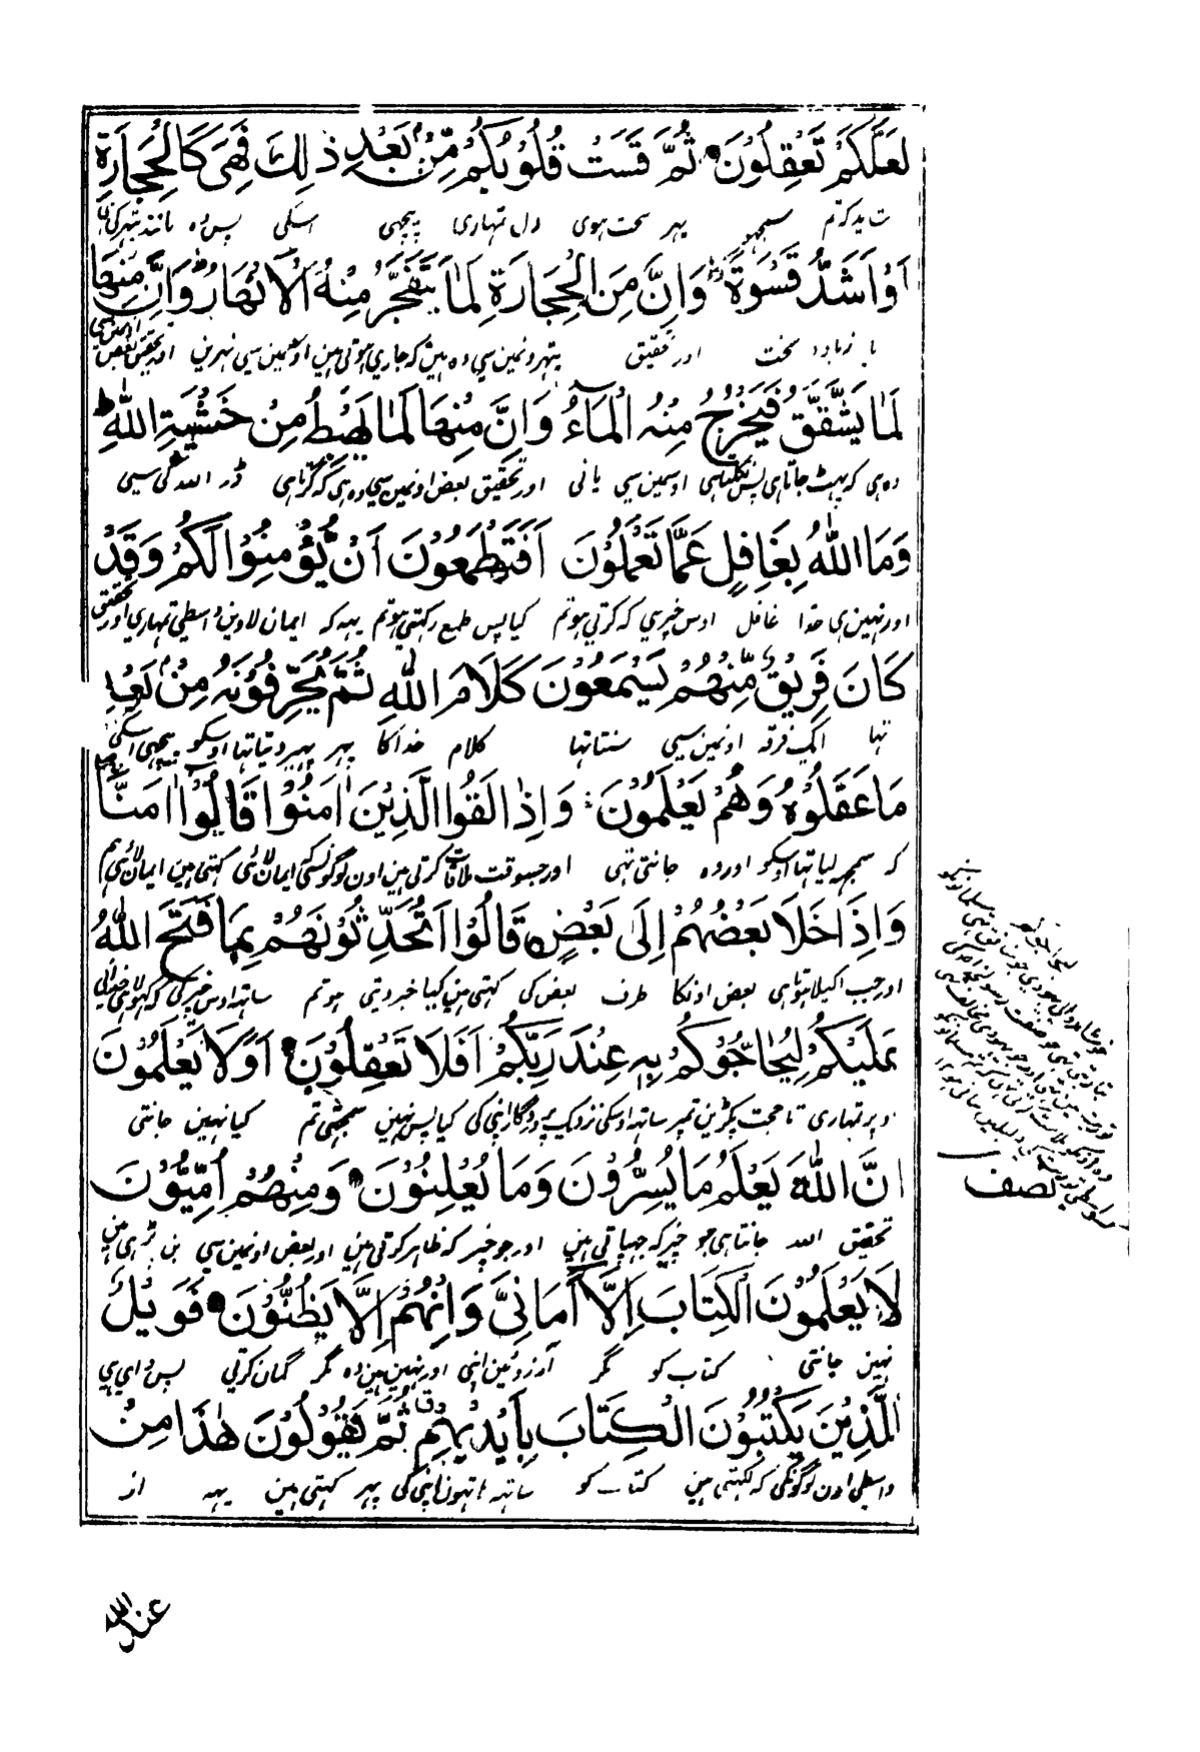 لَعَلَّكُمْ تَعْقِلُوْنَ ثُمَّ قَسَتْ قُلُوْبُكُمْ مِّنْۢ بَعْدِ ذٰلِكَ فَهِىَ كَالْحِجَارَةِ
شاید کہ تم سمجھو پہر سخت ہوی دل تمہاری پیچہی اسکی پس وہ مانند پتہر کی
اَوْ اَشَدُّ قَسْوَةً وَاِنَّ مِنَ الْحِجَارَةِ لَمَا يَتَفَجَّرُ مِنْهُ الْاَنْهَارُ وَاِنَّ مِنْهَا
یا زیادہ سخت اور تحقیق پتہرونمین سی وہ ہین کہ جاری ہوتی ہین اوسمین سی نہرین اور تحقیق بعض
لَمَا يَشَّقَّقُ فَيَخْرُجُ مِنْهُ الْمَآءُ وَاِنَّ مِنْهَا لَمَا يَهْبِطُ مِنْ خَشْيَةِ اللّٰهِ
وہ ہی کہ پہٹ جاتا ہی پس نکلتا ہی اوسمین سی پانی اور تحقیق بعض اونمین سی وہ ہی کہ گرتا ہی ڈر اللہ کی سی
وَمَا اللّٰهُ بِغَافِلٍ عَمَّا تَعْمَلُوْنَ اَفَتَطْمَعُوْنَ اَنْ يُّؤْمِنُوْا لَكُمْ وَقَدْ
اور نہین ہی خدا غافل اوس خیر سی کہ کرتی ہو تم کیا پس طمع رکہتی ہو تم یہہ کہ ایمان لاوین واسطی تمہاری اور تحقیق
كَانَ فَرِيْقٌ مِّنْهُمْ يَسْمَعُوْنَ كَلَامَ اللّٰهِ ثُمَّ يُحَرِّفُوْنَهٗ مِنْۢ بَعْدِ
تہا ایک فرقہ اونمین سی سنتا تہا کلام خدا کا پہر پہیر دیتا تہا اوسکو پیچہی اسکی
مَا عَقَلُوْهُ وَهُمْ يَعْلَمُوْنَ وَاِذَا لَقُوا الَّذِيْنَ اٰمَنُوْا قَالُوْٓا اٰمَنَّا
کہ سمجہہ لیا تہا اوسکو اور وہ جانتی تہی اور جسوقت ملاقات کرتی ہین اون لوگونسی کہ ایمان لائی کہتی ہین ایمان لائی ہم
وَاِذَا خَلَا بَعْضُهُمْ اِلٰى بَعْضٍ قَالُوْٓا اَتُحَدِّثُوْنَهُمْ بِمَا فَتَحَ اللّٰهُ
اور جب اکیلا ہوتا ہی بعض اونکا طرف بعض کی کہتی ہین کیا خبر دیتی ہو تم ساتہہ اوس خیر کی کہ کہولا ہی خدا نی
عَلَيْكُمْ لِيُحَآجُّوْكُمْ بِهٖ عِنْدَ رَبِّكُمْ اَفَلَا تَعْقِلُوْنَ اَوَلَا يَعْلَمُوْنَ
اوپر تمہاری تا حجت پکڑین تمپر ساتہہ اوسکی نزدیک پروردگار اپنی کی کیا پس نہین سمجہتی تم کیا نہین جانتی
اَنَّ اللّٰهَ يَعْلَمُ مَا يُسِرُّوْنَ وَمَا يُعْلِنُوْنَ وَمِنْهُمْ اُمِّيُّوْنَ
تحقیق اللہ جانتا ہی جو خیر کہ چہپاتی ہین اور جو خیر کہ ظاہر کرتی ہین اور بعض اونمین سی بن پڑہی ہین
لَا يَعْلَمُوْنَ الْكِتَابَ اِلَّآ اَمَانِىَّ وَاِنْهُمْ اِلَّا يَظُنُّوْنَ فَوَيْلٌ
نہین جانتی کتاب کو مگر آرزوئین اپنی اور نہین ہین وہ مگر گمان کرتی پس وای ہی
لِّلَّذِيْنَ يَكْتُبُوْنَ الْكِتَابَ بِاَيْدِيْهِمْ ثُمَّ يَقُوْلُوْنَ هٰذَا مِنْ
واسطی اون لوگونکی کہ لکہتی ہین کتاب کو ساتہہ ہاتہون اپنی کی پہر کہتی ہین یہہ از
نصف
عند اللّٰه